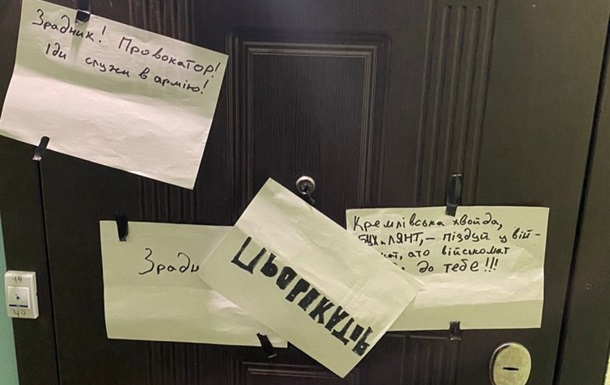 Зрадник! Провокатор!
Іди служи в армію!
Зрадн
ПРОВОКАТОР
Кремлівська хвойда,
– піздуй у вій-
ато військомат
до тебе!!!